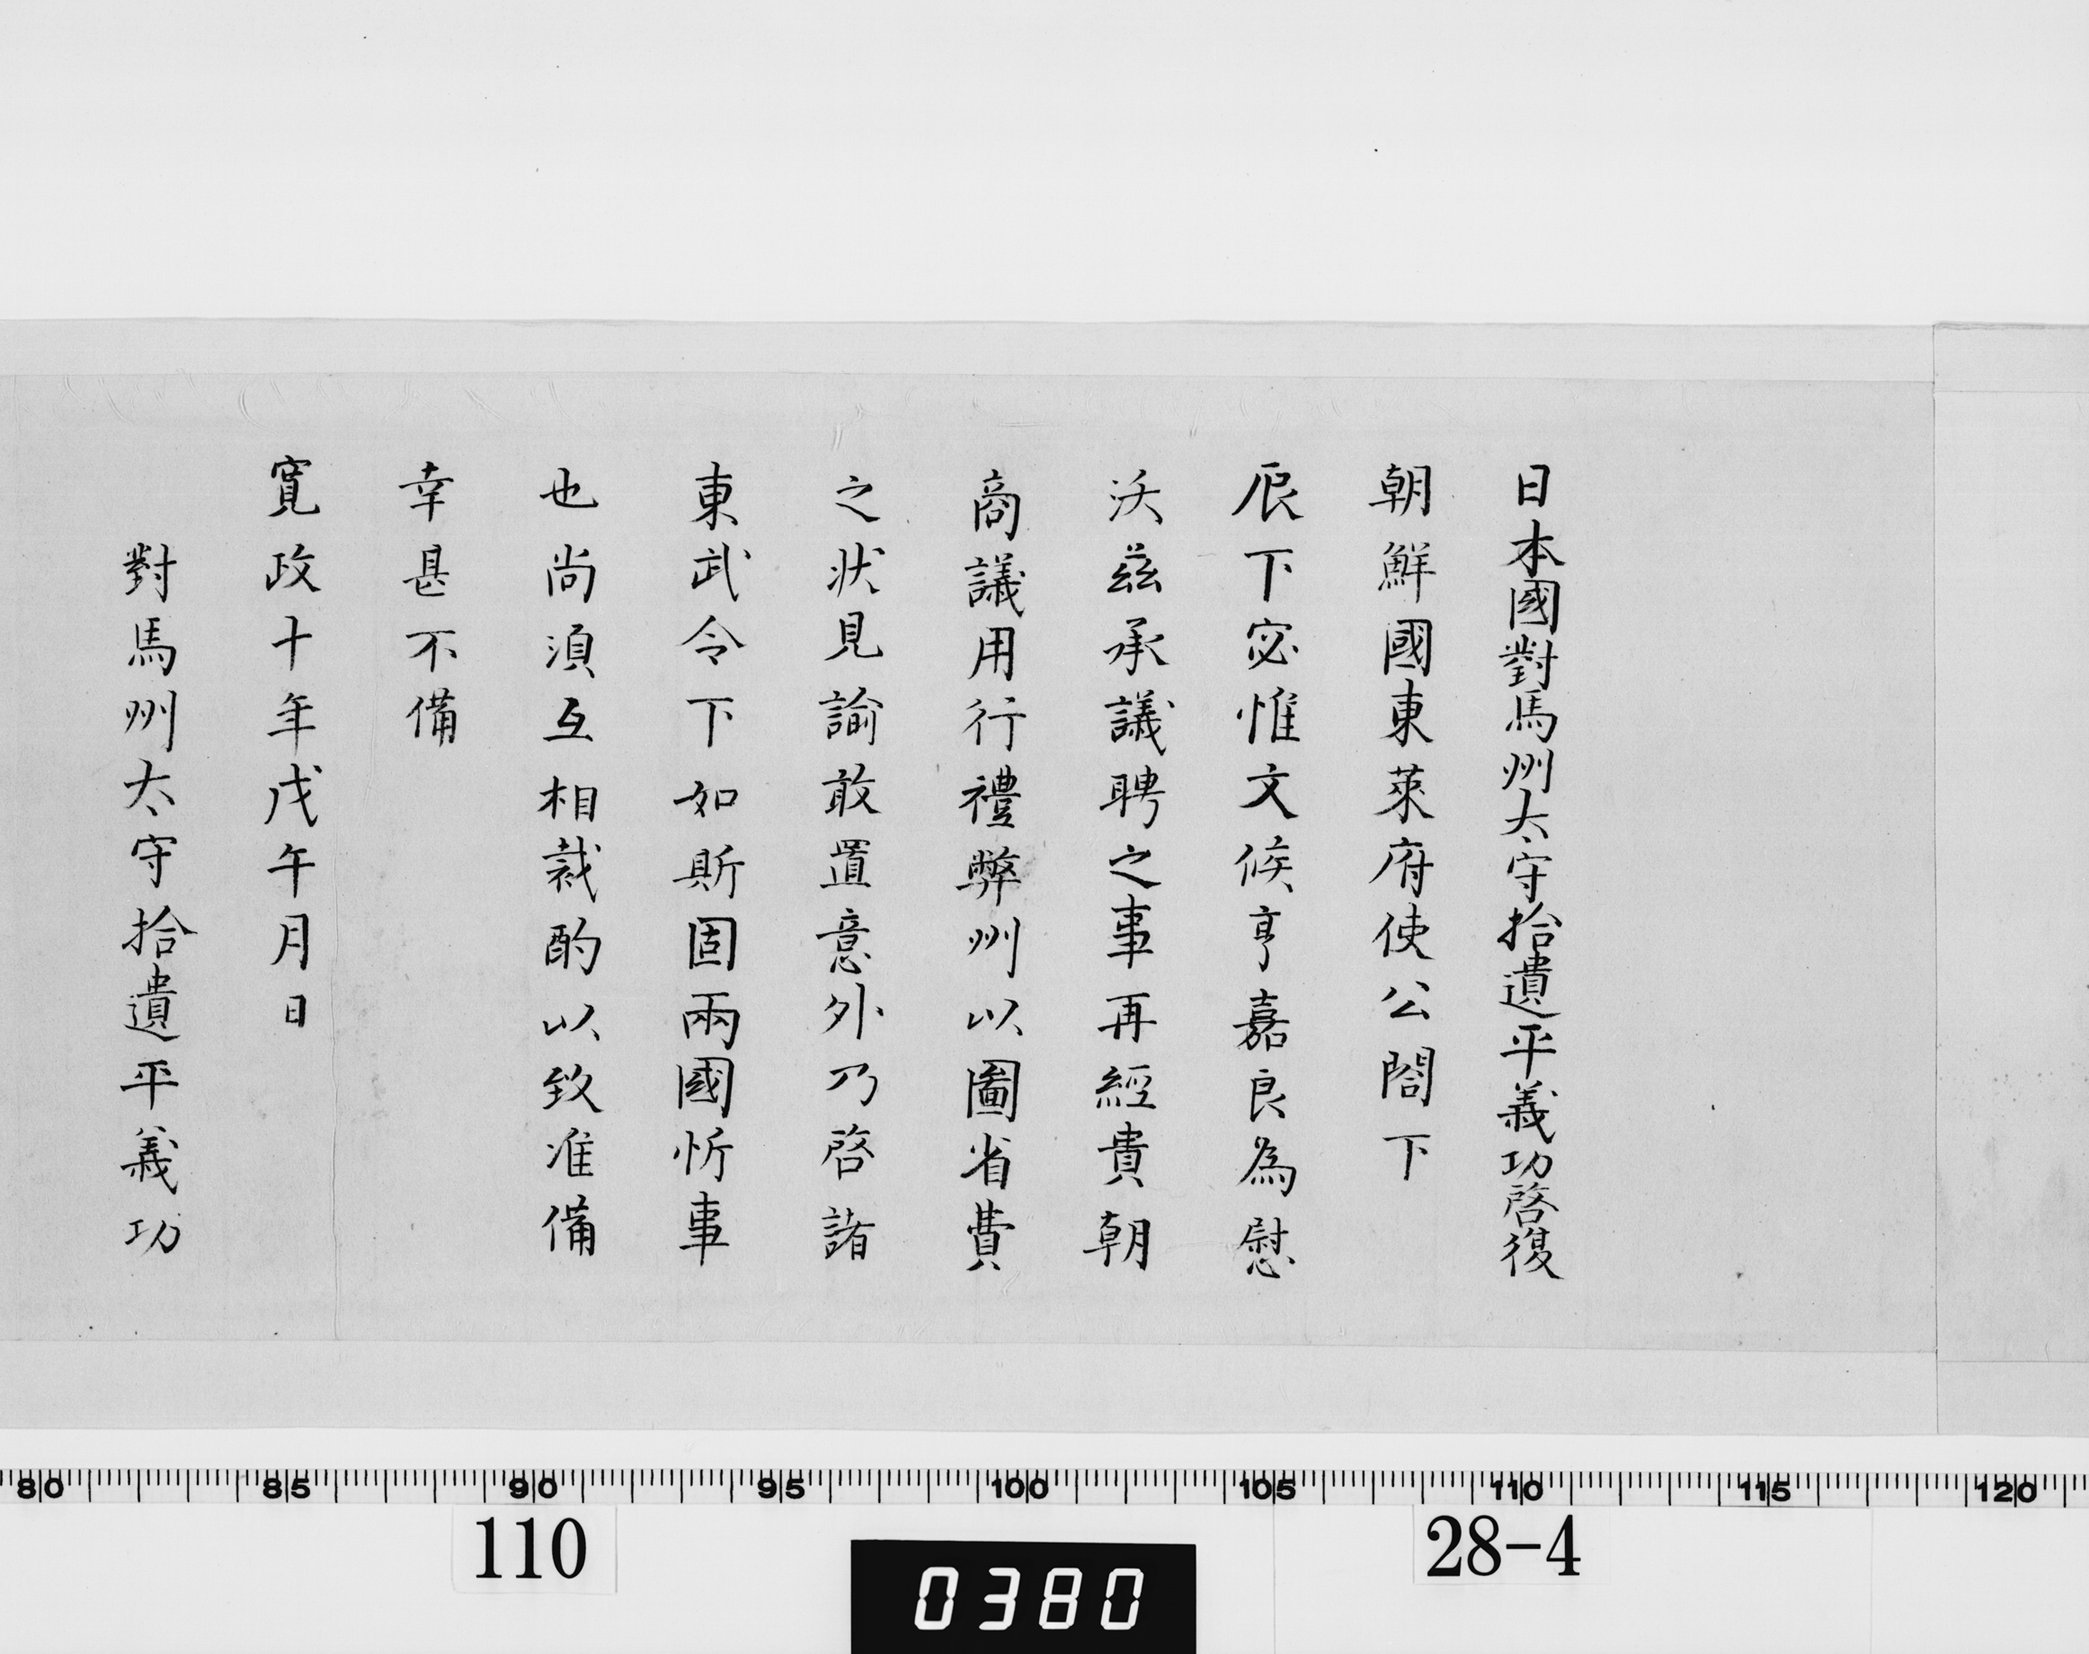 日本國對馬州太守拾遺平義功啓復
朝鮮國東萊府使公閤下
辰下宓惟文候亨嘉良為慰
沃茲承議聘之事再經貴朝
商議用行禮弊州以圖省費
之狀見諭敢置意外乃啓諸
東武令下如斯固兩國忻事
也尚須互相裁酌以致准備
幸甚不備
寬政十年戊午月日
對馬州太守拾遺平義功
80 85 90 95 100 105 110 115 120
110
0380
28-4